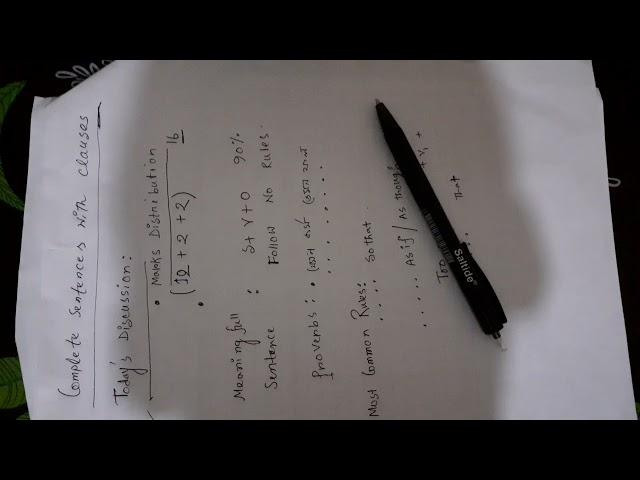 Complete Sentences with clauses
Today's Discussion:
• Marks Distribution
• (10 + 2 + 2) 16
Meaning full : S + V + O 90%
Sentence Follow No Rules.
Proverbs : • যেমন কর্ম তেমন ফল
Most Common Rules: So that
As if / As though
+ V1 +
Too
That
saltipido